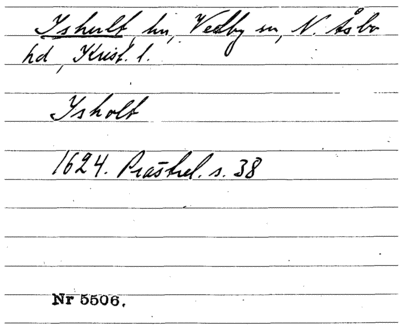 Ishult, hn, Vedby sn, N. Åsbo
hd, Krist. l.
Isholt
1624. Prästrel. s. 38
Nr 5506.